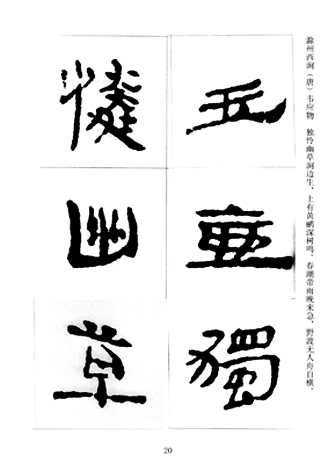 滁州西涧（唐）韦应物 独怜幽草涧边生，上有黄鹂深树鸣。春潮带雨晚来急，野渡无人舟自横。
五獨
憐幽草
20